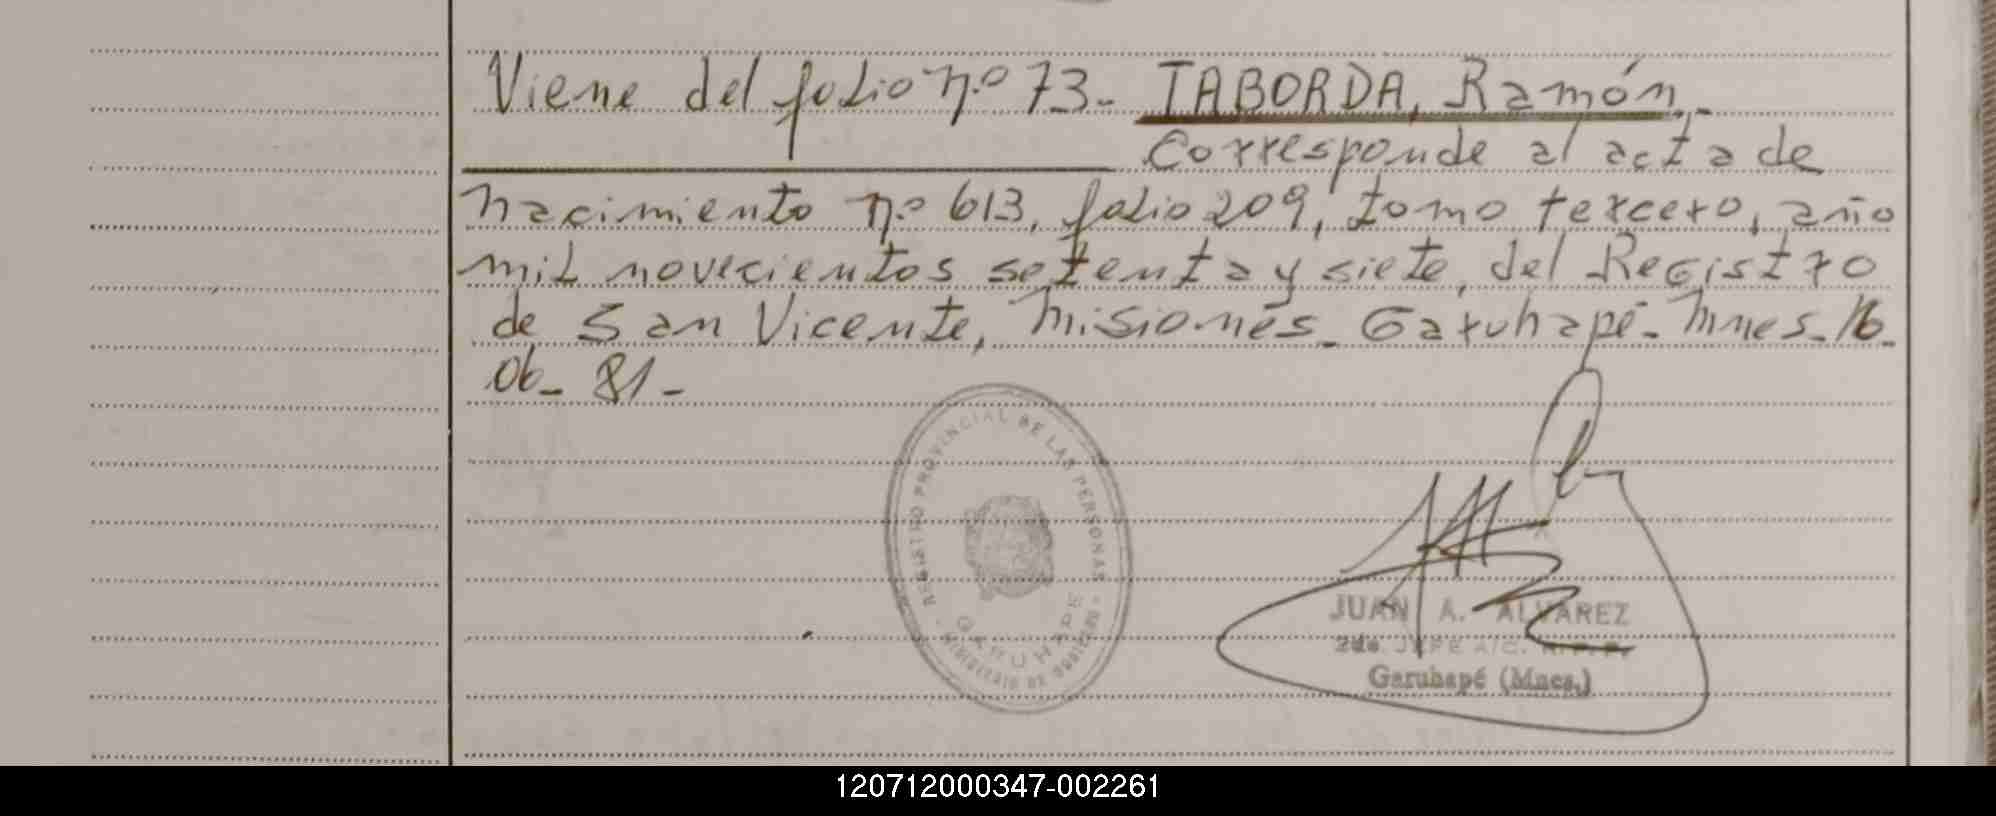 Viene del folio n.o 73_ TABORDA, Ramón_
Corresponde al acta de
nacimiento n.o 613, folio 209, tomo tercero, año
mil novecientos setenta y siete, del Registro
de San Vicente, Misiones_ Garuhapé_ Mnes_ 16_
06_ 81_
REGISTRO PROVINCIAL DE LAS PERSONAS
GARUHAPE
MINISTERIO DE GOBIERNO
JUAN A. ALVAREZ
2do. JEFE A/C. R. P. P.
Garuhapé (Mnes.)
120712000347-002261